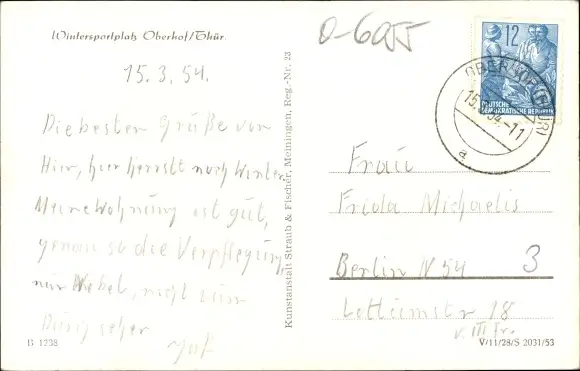 Wintersportplatz Oberhof/Thür.
O-6055
15.3.54.
Die besten Grüße von
Hier, hier herrscht noch Winter
Meine Wohnung ist gut,
genau so die Verpflegung,
nur Nebel, nicht zum
B 1238
Kunstanstalt Straub & Fischer, Meiningen, Reg.-Nr. 23
12
DEUTSCHE
DEMOKRATISCHE REPUBLIK
OBERHOF (THÜR)
15. 54.-11
a
Frau
Frida Michaelis
Berlin N 54
3
Lottumstr 18
v. III Tr.
V/11/28/S 2031/53